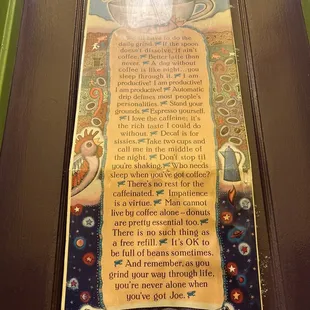 to do the
daily grind. If the spoon
doesn't dissolve, it ain't
coffee. Better latte than
never. A day without
coffee is like night...you
sleep through it. I am
productive! I am productive!
I am productive! Automatic
drip defines most people's
personalities. Stand your
grounds. Espresso yourself.
I love the caffeine; it's
the rich taste I could do
without. Decaf is for
sissies. Take two cups and
call me in the middle of
the night. Don't stop til
you're shaking. Who needs
sleep when you've got coffee?
There's no rest for the
caffeinated. Impatience
is a virtue. Man cannot
live by coffee alone – donuts
are pretty essential too.
There is no such thing as
a free refill. It's OK to
be full of beans sometimes.
And remember, as you
grind your way through life,
you're never alone when
you've got Joe.